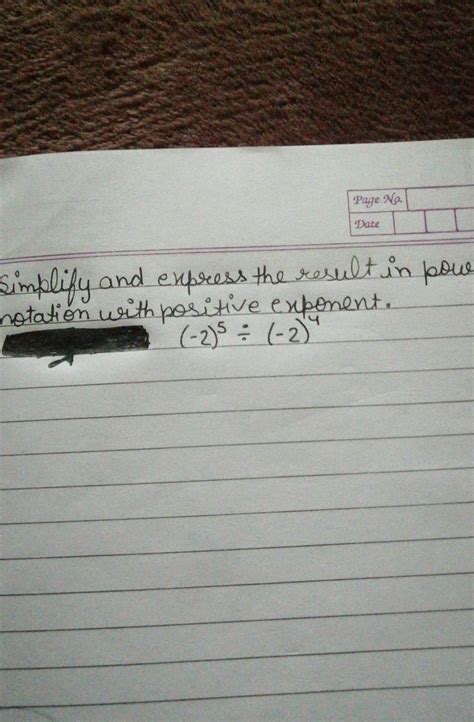 Page No.
Date
Simplify and express the result in powe
notation with positive exponent.
(-2)⁵ ÷ (-2)⁴